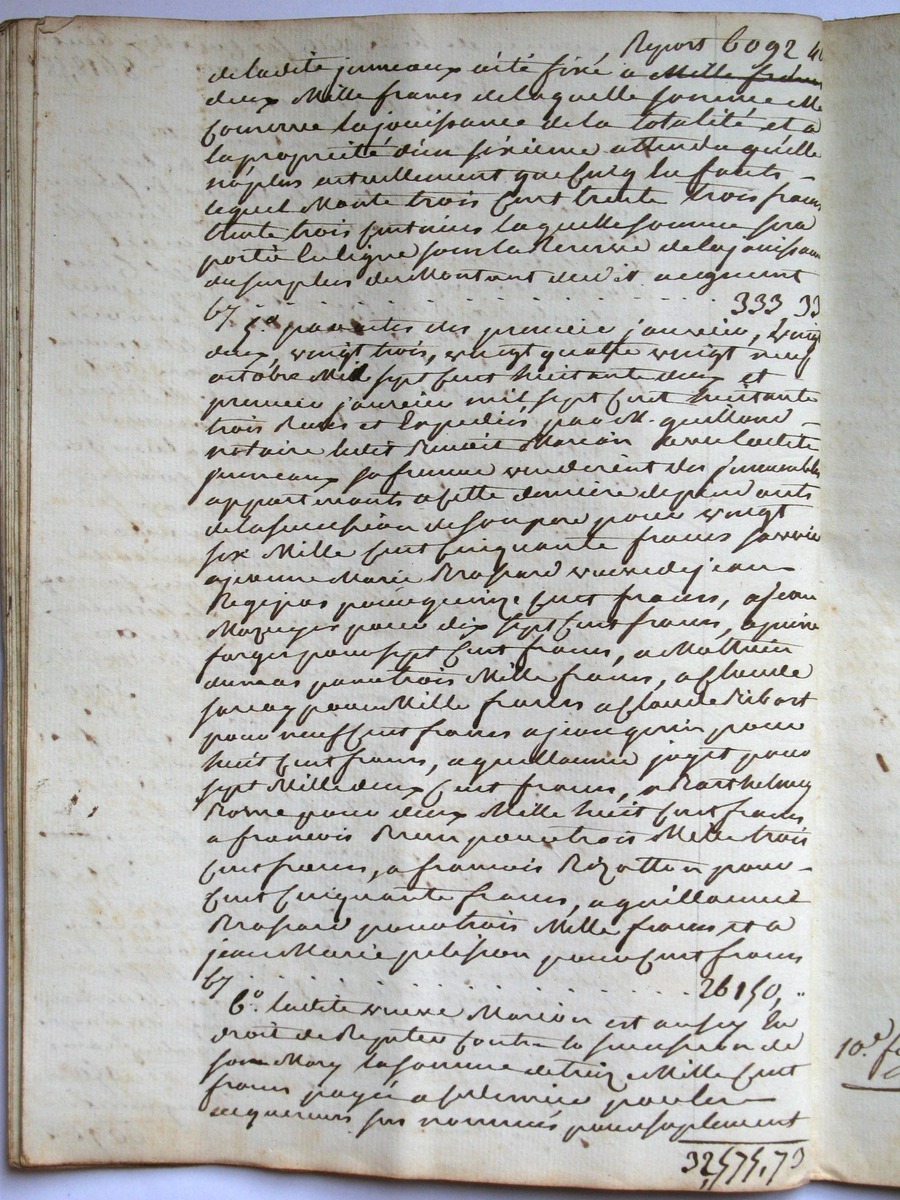 Report 6092 40
de ladite jumeaux a été fixé a Mille francs
deux Mille francs de laquelle somme elle
Conserve la jouissance de la totalité et a
la propriété d'un sixieme attendu qu'elle
n'a plus actuellement que Cinq Enfants -
lequel Monte trois Cent trente trois francs
trente trois Centimes laquelle somme sera
porté En ligne sous la Reserve de la jouissance
du surplus du Montant dudit augment
Cy . . . . . . . . . . 333 33
5.° par actes des premier janvier, vingt
deux, vingt trois, vingt quatre vingt neuf
octobre Mil sept Cent huitante deux et
premier janvier mil sept Cent huitante
trois Reçus et Expediés par M. guilland
notaire ledit Benoit Marion avec ladite
jumeaux sa femme venderent des jmmeubles
appartenants a Cette derniere dependants
de la succession de son pere pour vingt
six Mille Cent Cinquante francs savoir
a jeanne Marie Brossard veuve de jean
pour quinze Cent francs, a jean
Mazuyer pour dix sept Cent francs, a pierre
farges pour sept Cent francs, a Mathieu
dumas pour trois Mille francs, a Claude
pour Mille francs a Claude Ribost
pour neuf Cent francs a jean pour
huit Cent francs, a guillaume joyet pour
sept Mille deux Cent francs, a Barthelmy
Borne pour deux Mille huit Cent francs
a francois Brun pour trois Mille trois
Cent francs, a francois pour
Cent Cinquante francs, a guillaume
Brossard pour trois Mille francs et a
jean Marie pelission pour Cent francs
Cy . . . . . . . . . . 26150, "
6.° ladite veuve Marion est aussy En
droit de Repeter Contre la succession de
son Mary la somme de treize Mille Cent
francs payée a Ce dernier par les
acquereurs sus nommés pour suplement
32,575,73
10.e